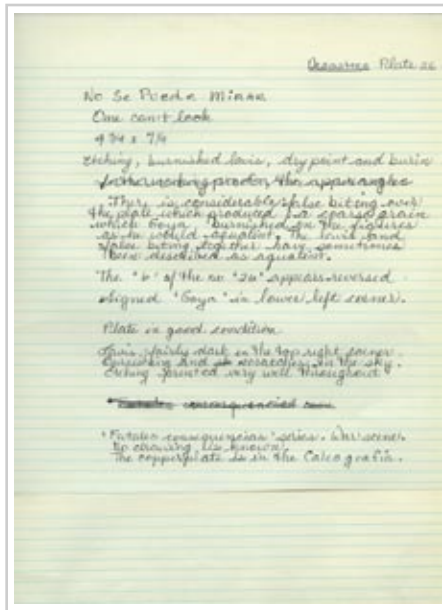 Disasters Plate 26
No Se Puede Mirar
One can't look
Etching, burnished lavis, dry point and burin
In the working proofs, the upper angles
There is considerable false biting over
the plate which produced a coarse grain
which Goya burnished on the figures
as he would aquatint. The lavis and
false biting together have sometimes
been described as aquatint.
The "6" of the no "26" appears reversed
Signed "Goya" in lower left corner.
Plate in good condition
Lavis fairly dark in the top right corner.
and scratches in the sky.
Etching printed very well throughout
"Fatales consequencias" series. War scenes
No drawing is known.
The copperplate is in the Calcografia.